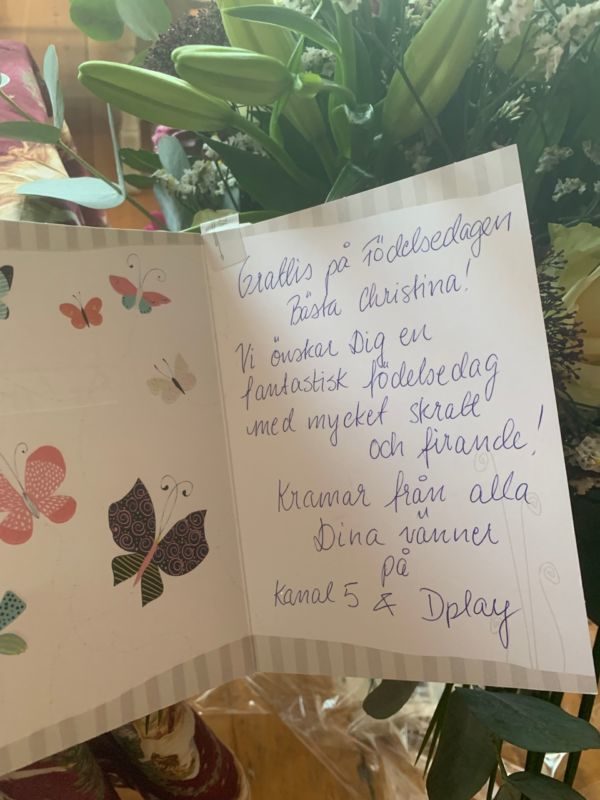 Grattis på Födelsedagen
Bästa Christina!
Vi önskar Dig en
fantastisk födelsedag
med mycket skratt
och firande!
Kramar från alla
Dina vänner
på
Kanal 5 & Dplay